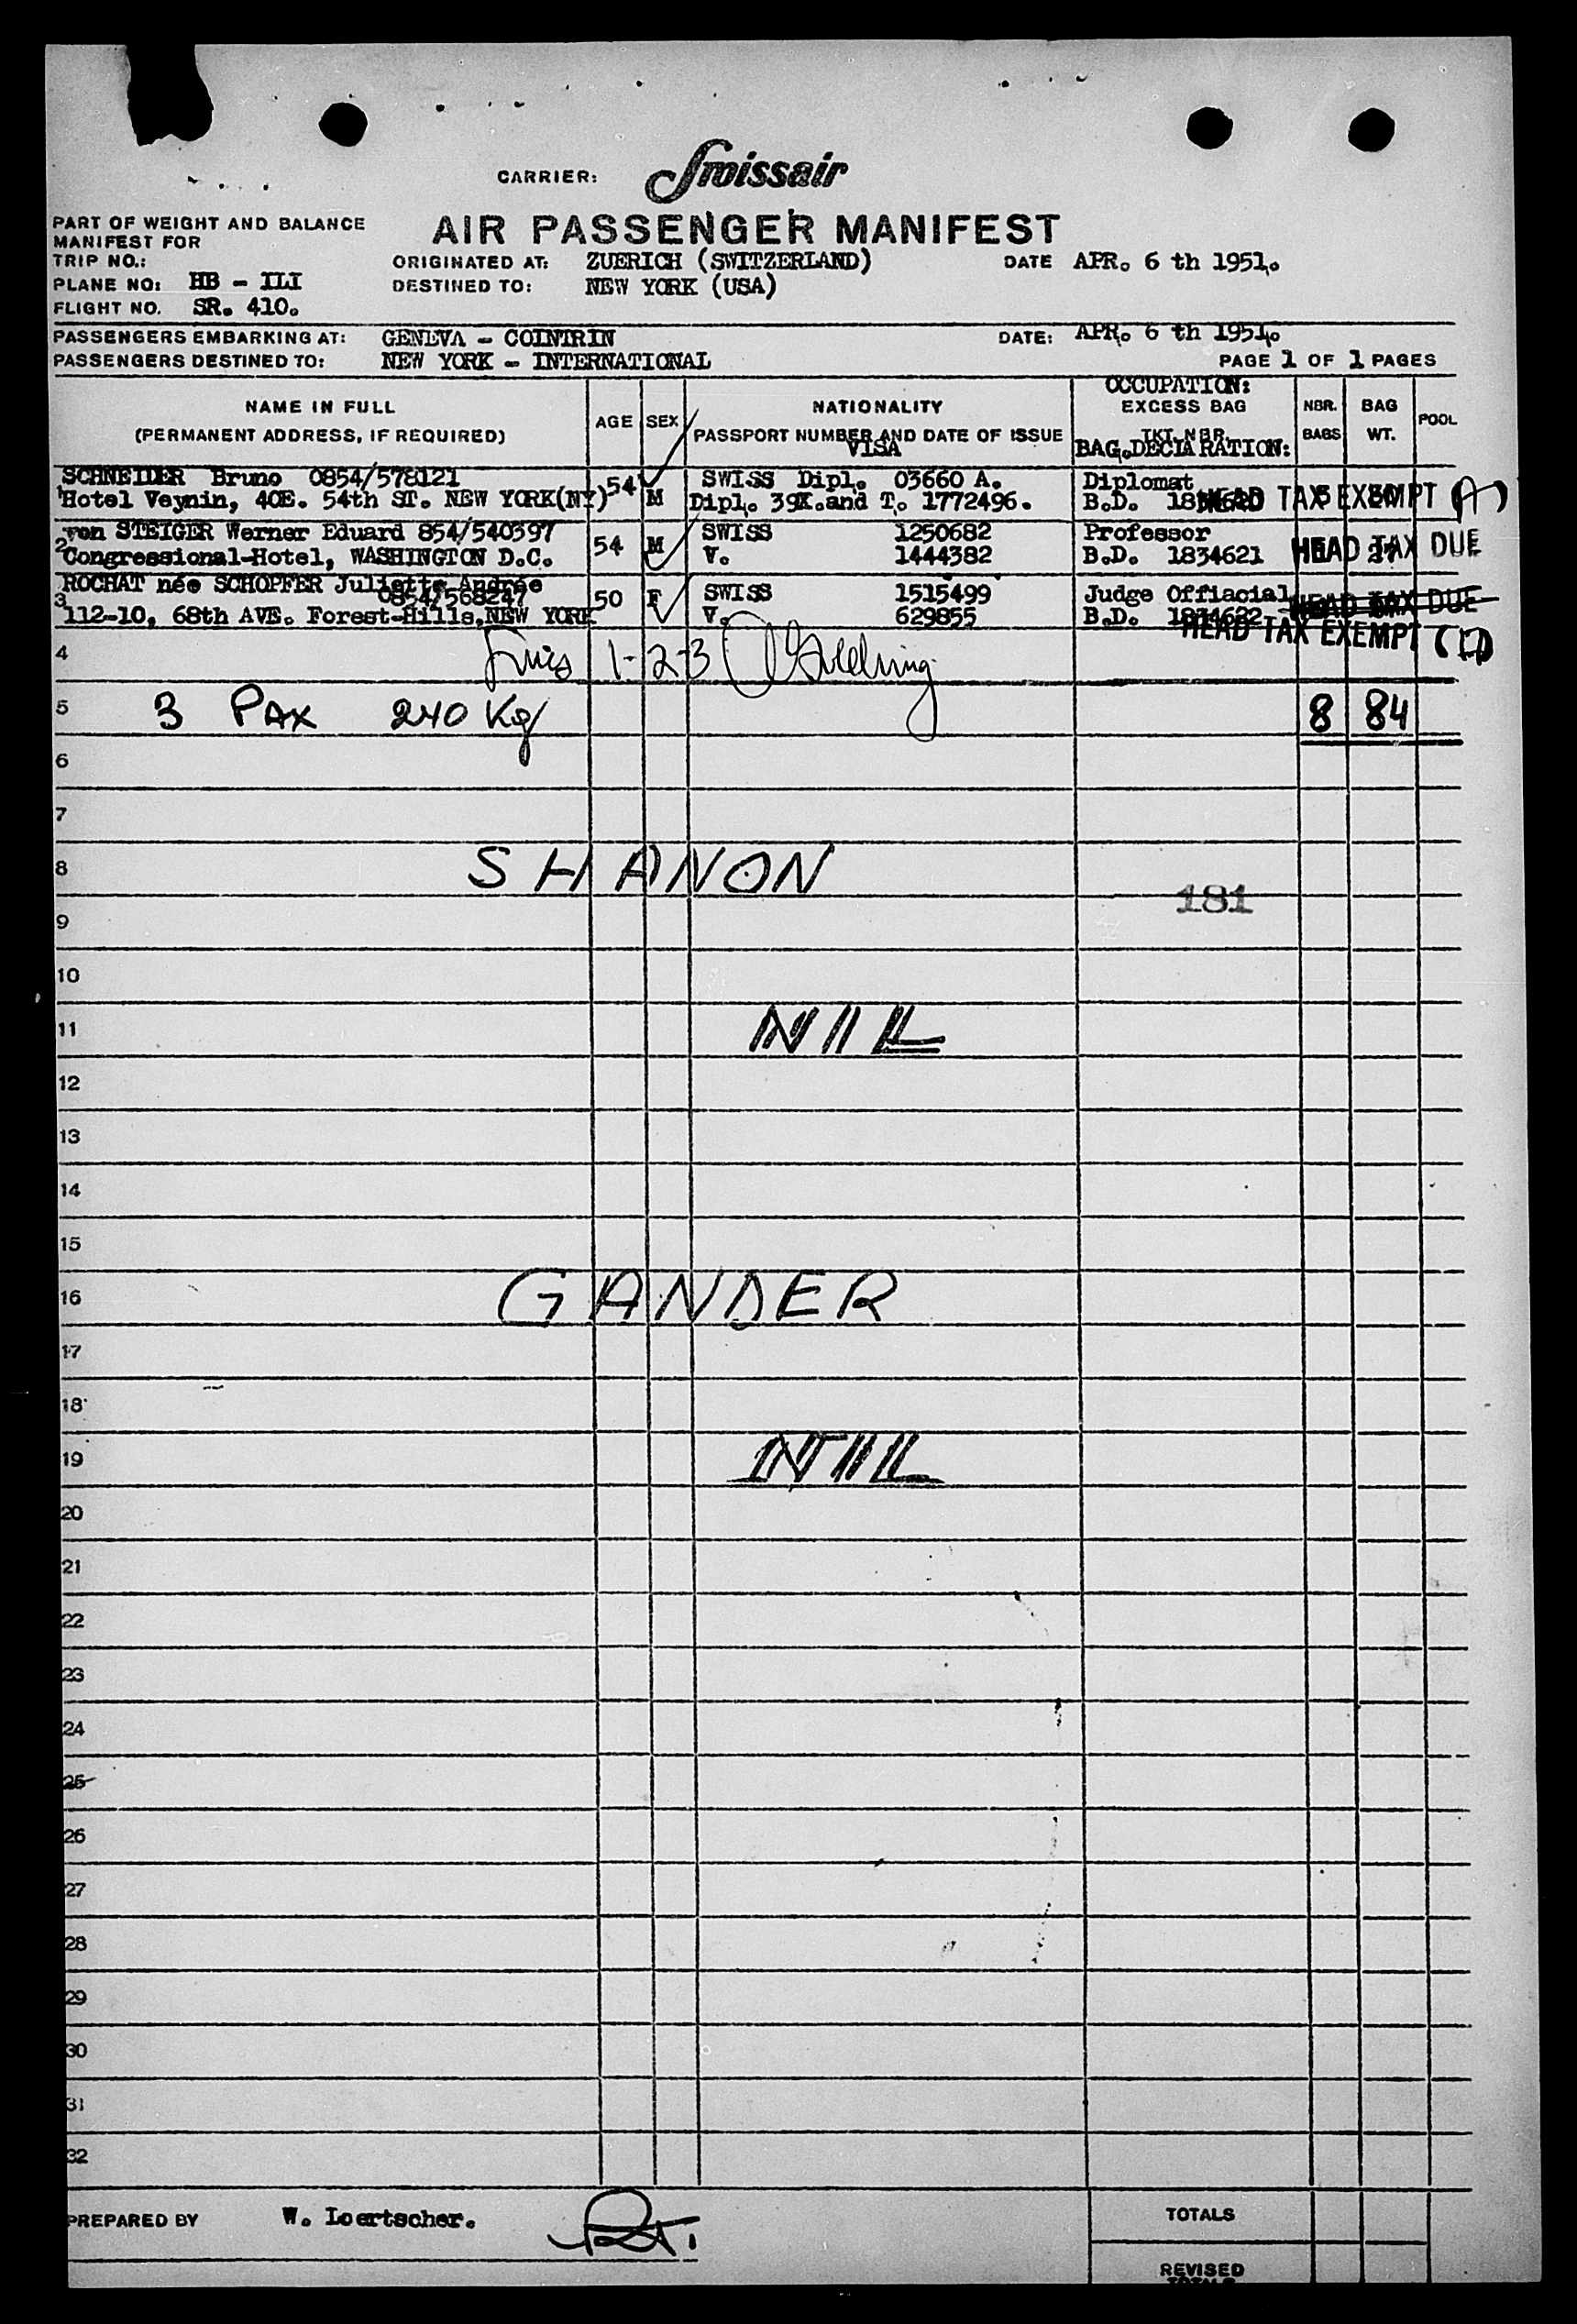 CARRIER: Swissair
AIR PASSENGER MANIFEST
PART OF WEIGHT AND BALANCE
MANIFEST FOR
TRIP NO.:
ORIGINATED AT: ZUERICH (SWITZERLAND) DATE APR. 6 th 1951.
PLANE NO: HB - ILI DESTINED TO: NEW YORK (USA)
FLIGHT NO. SR. 410.
PASSENGERS EMBARKING AT: GENEVA - COINTRIN DATE: APR. 6 th 1951.
PASSENGERS DESTINED TO: NEW YORK - INTERNATIONAL PAGE 1 OF 1 PAGES
NAME IN FULL
(PERMANENT ADDRESS, IF REQUIRED)
AGE
SEX
NATIONALITY
PASSPORT NUMBER AND DATE OF ISSUE
VISA
OCCUPATION:
EXCESS BAG
TKT. NBR.
BAG.DECLARATION:
NBR.
BAGS
BAG
WT.
POOL
SCHNEIDER Bruno 0854/578121 54 M SWISS Dipl. 03660 A. Diplomat
1 Hotel Veynin, 40E. 54th ST. NEW YORK(NY) Dipl. 39K.and T. 1772496. B.D. HEAD TAX EXEMPT (A)
von STEIGER Werner Eduard 854/540397 54 M SWISS 1250682 Professor
2 Congressional-Hotel, WASHINGTON D.C. V. 1444382 B.D. 1834621 HEAD TAX DUE
ROCHAT née SCHOPFER Juliette Andrée
0854/568247
3 50 F SWISS 1515499 Judge Offiacial HEAD TAX DUE
112-10, 68th AVE. Forest-Hills, NEW YORK V. 629855 B.D. 1834622
HEAD TAX EXEMPT
4 1-2-3
5 3 PAX 240 Kg 8 84
6
7
8 SHANON
181
9
10
11 NIL
12
13
14
15
16 GANDER
17
18
19 NIL
20
21
22
23
24
25
26
27
28
29
30
31
32
PREPARED BY W. Loertscher.
TOTALS
REVISED
TOTALS